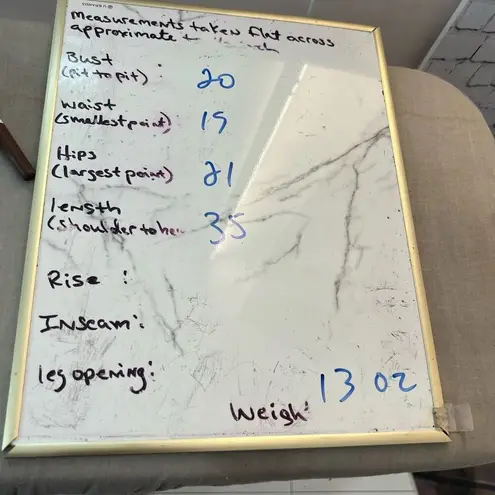 measurements taken flat across
approximate
Bust :
(pit to pit) 20
waist
(smallest point) : 19
Hips
(largest point) 21
length
(shoulder to he 35
Rise :
Inseam :
leg opening :
13 oz
Weigh :